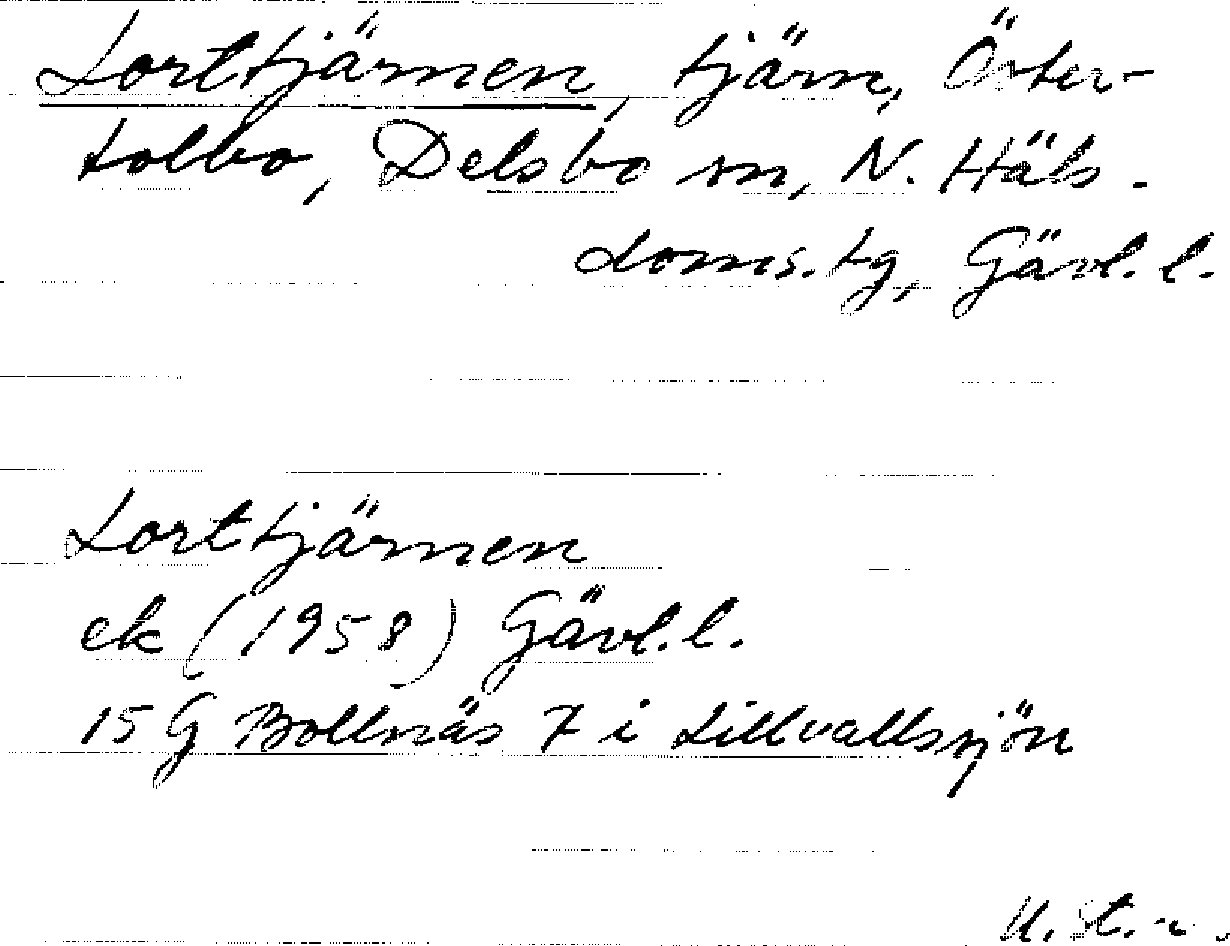 Lorttjärnen, tjärn, Öster-
tolbo, Delsbo sn, N. Häls.
doms.tg, Gävl.l.
Lorttjärnen
ek (1958) Gävl.l.
15 G Bollnäs 7 i Lillvallssjön
U. St.